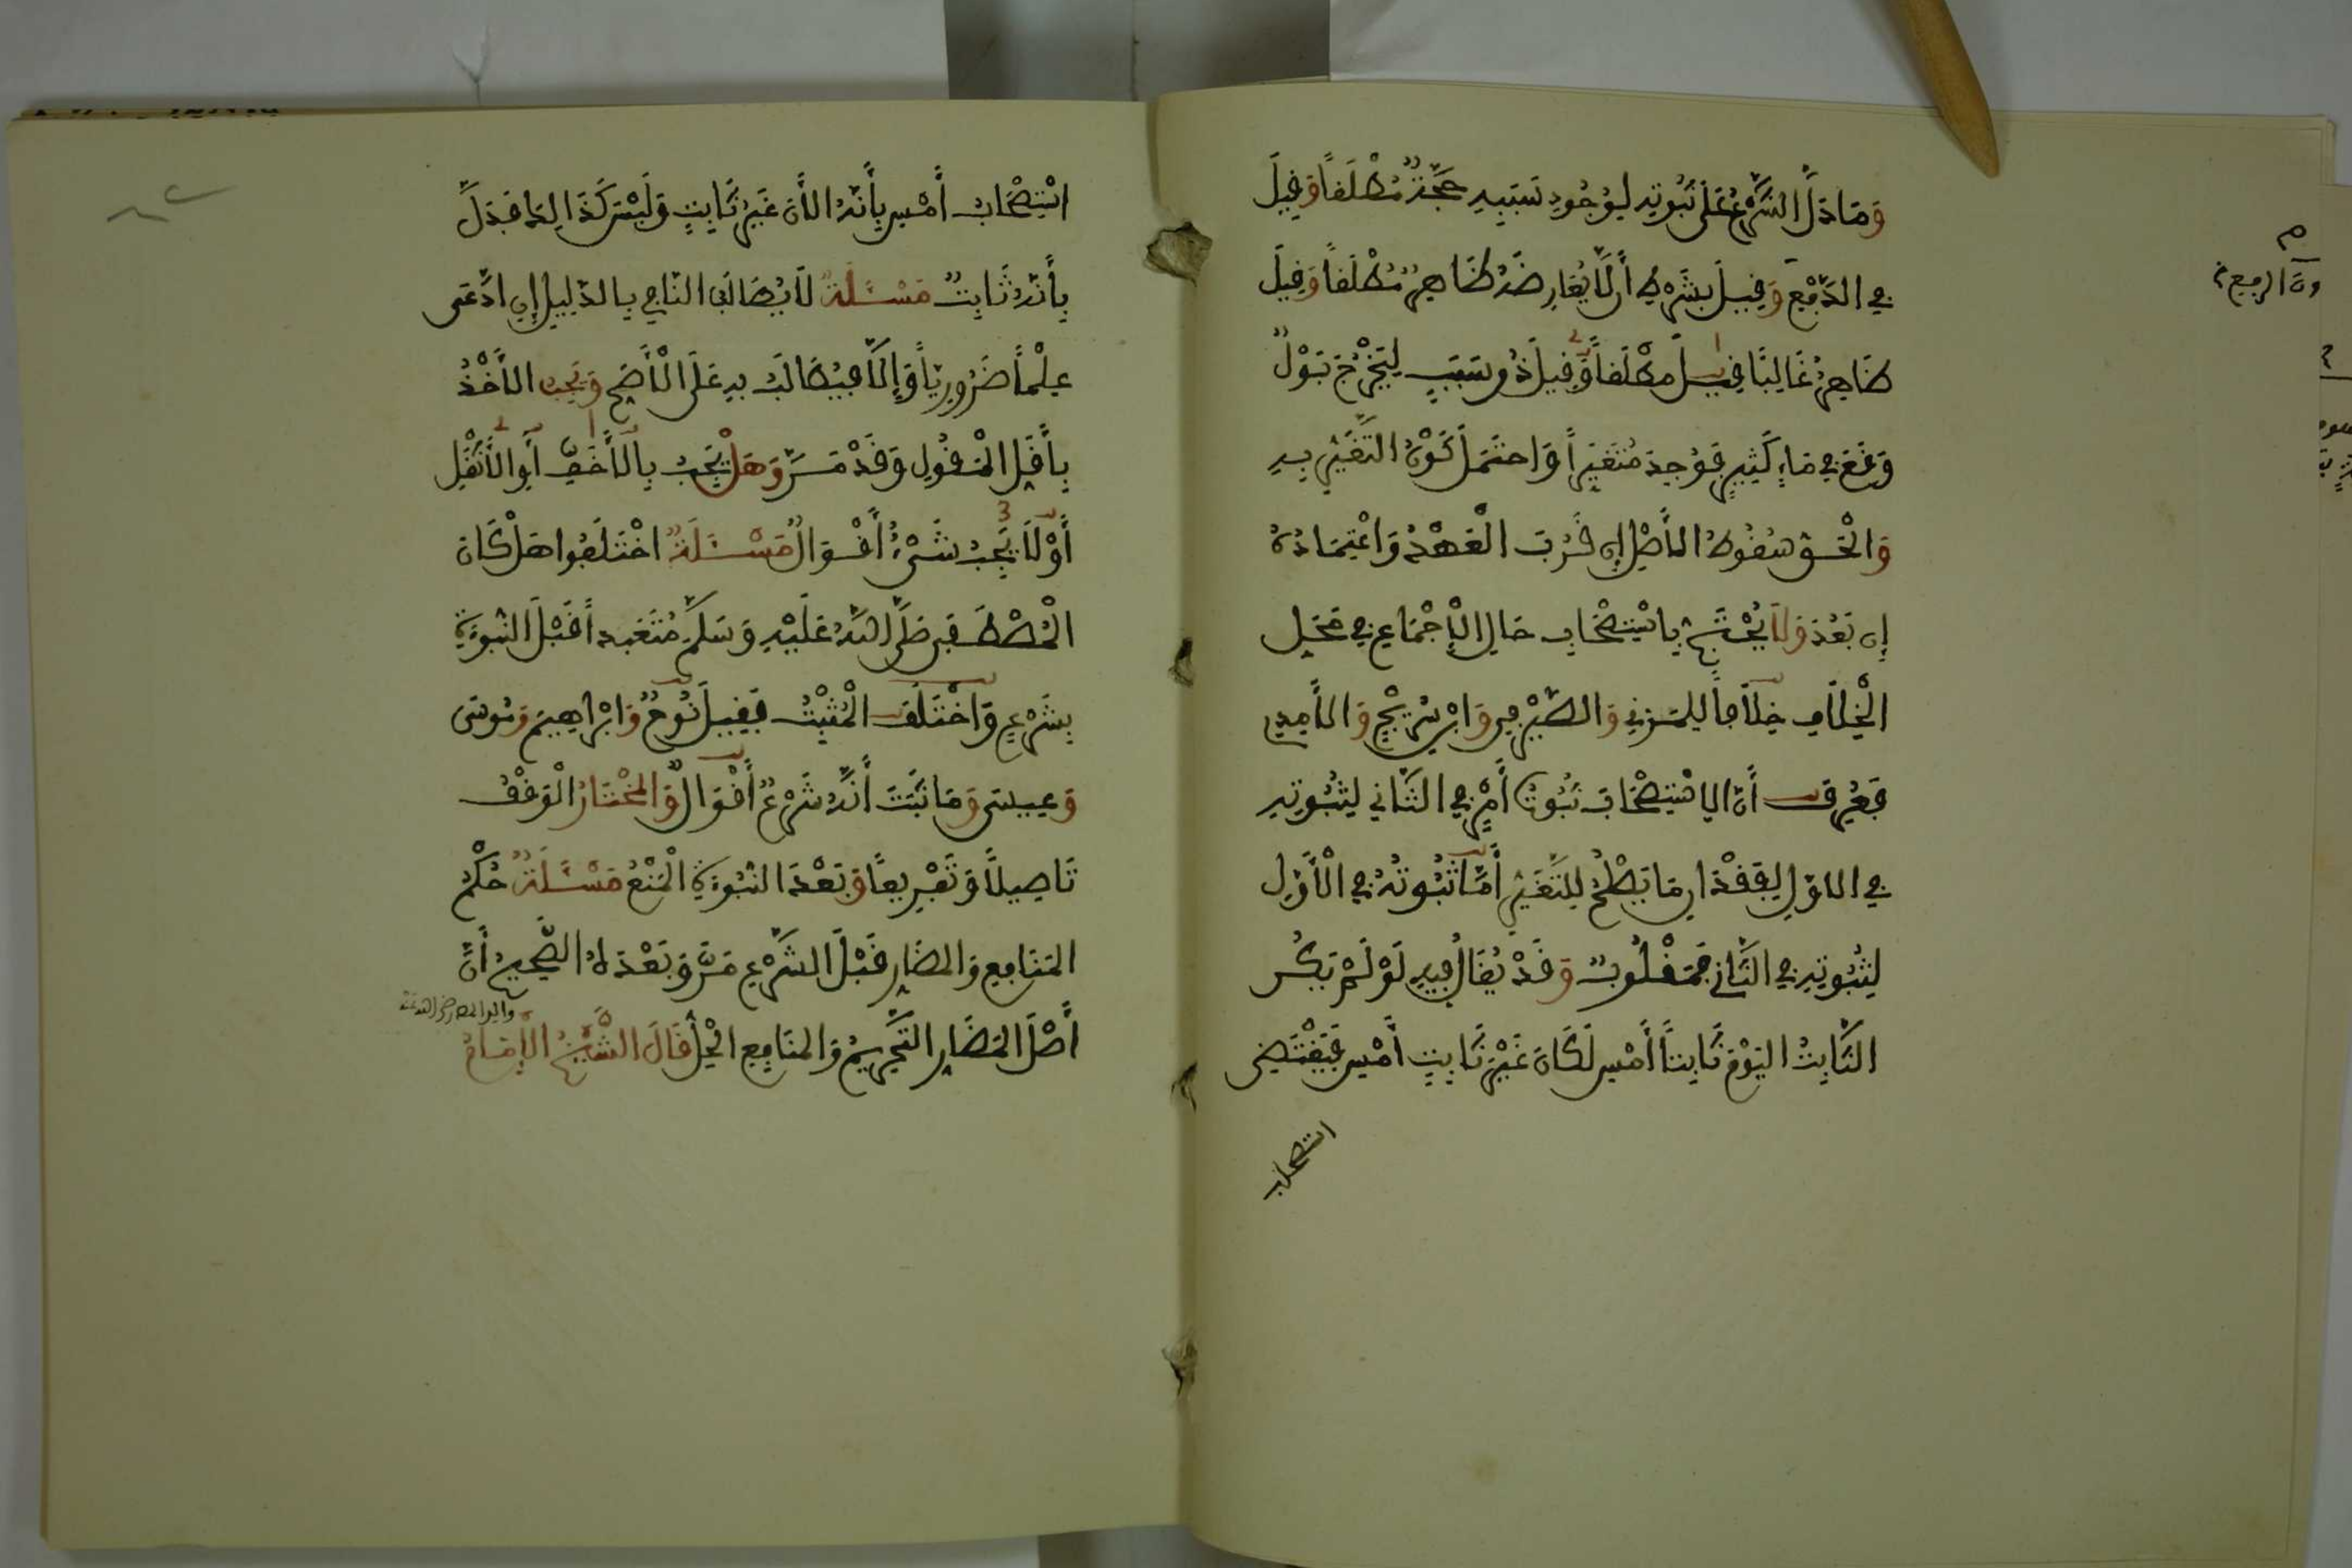 وَمَا دَلَّ الشَّرْعُ عَلَى ثُبُوتِهِ لِوُجُودِ سَبَبِهِ حُجَّةٌ مُطْلَقاً وَقِيلَ
فِي الدَّفْعِ وَقِيلَ بِشَرْطِ أَن لَّا يُعَارِضَهُ ظَاهِرٌ مُطْلَقاً وَقِيلَ
ظَاهِرٌ غَالِبًا قِيلَ مُطْلَقاً وَقِيلَ ذُو سَبَبٍ لِيَخْرُجَ بَوْلٌ
وَقَعَ فِي مَاءٍ كَثِيرٍ فَوُجِدَ مُتَغَيِّراً وَاحْتَمَلَ كَوْنُ التَّغَيُّرِ بِهِ
وَالْحَقُّ سُقُوطُ الْأَصْلِ إِن قَرُبَ الْعَهْدُ وَاعْتِمَادُهُ
إِن بَعُدَ وَلَا يُحْتَجُّ بِاسْتِصْحَابِ حَالِ الْإِجْمَاعِ فِي مَحَلِّ
الْخِلَافِ خِلَافاً لِلْمُزَنِي وَالصَّيْرَفِي وَابْنِ سُرَيْجٍ وَالْآمِدِي
فَعُرِفَ أَنَّ الِاسْتِصْحَابَ ثُبُوتُ أَمْرٍ فِي الثَّانِي لِثُبُوتِهِ
فِي الْأَوَّلِ لِفَقْدَانِ مَا يَصْلُحُ لِلتَّغْيِيرِ أَمَّا ثُبُوتُهُ فِي الْأَوَّلِ
لِثُبُوتِهِ فِي الثَّانِي فَمَقْلُوبٌ وَقَدْ يُقَالُ فِيهِ لَوْ لَمْ يَكُنِ
الثَّابِتُ الْيَوْمَ ثَابِتاً أَمْسِ لَكَانَ غَيْرَ ثَابِتٍ أَمْسِ فَيَقْتَضِي
استصحاب
اسْتِصْحَابُ أَمْسِ بِأَنَّهُ الْآنَ غَيْرُ ثَابِتٍ وَلَيْسَ كَذَالِكَ فَدَلَّ
بِأَنَّهُ ثَابِتٌ مَسْئَلَةٌ لَا يُطَالَبُ النَّافِي بِالدَّلِيلِ إِنِ ادَّعَى
عِلْماً ضَرُورِيّاً وَإِلَّا فَيُطَالَبُ بِهِ عَلَى الْأَصَحِّ وَيَجِبُ الْأَخْذُ
بِأَقَلِّ الْمَقُولِ وَقَدْ مَرَّ وَهَلْ يَجِبُ بِالْأَخَفِّ أَوِ الْأَثْقَلِ
أَوْ لَا يَجِبُ شَيْءٌ أَقْوَالٌ مَسْئَلَةٌ اخْتَلَفُوا هَلْ كَانَ
الْمُصْطَفَى صَلَّى اللَّهُ عَلَيْهِ وَسَلَّمَ مُتَعَبِّداً قَبْلَ النُّبُوَّةِ
بِشَرْعٍ وَاخْتَلَفَ الْمُثْبِتُ فَقِيلَ نُوحٌ وَابْرَاهِيمَ وَمُوسَى
وَعِيسَى وَمَا ثَبَتَ أَنَّهُ شَرْعٌ أَقْوَالٌ وَالْمُخْتَارُ الْوَقْفُ
تَاصِيلاً وَتَفْرِيعاً وَبَعْدَ النُّبُوَّةِ الْمَنْعُ مَسْئَلَةٌ حُكْمُ
الْمَنَافِعِ وَالْمَضَارِّ قَبْلَ الشَّرْعِ مَرَّ وَبَعْدَهُ الصَّحِيحُ أَنَّ
أَصْلَ الْمَضَارِّ التَّحْرِيمُ وَالْمَنَافِعِ الْحِلُّ قَالَ الشَّيْخُ الْإِمَامُ